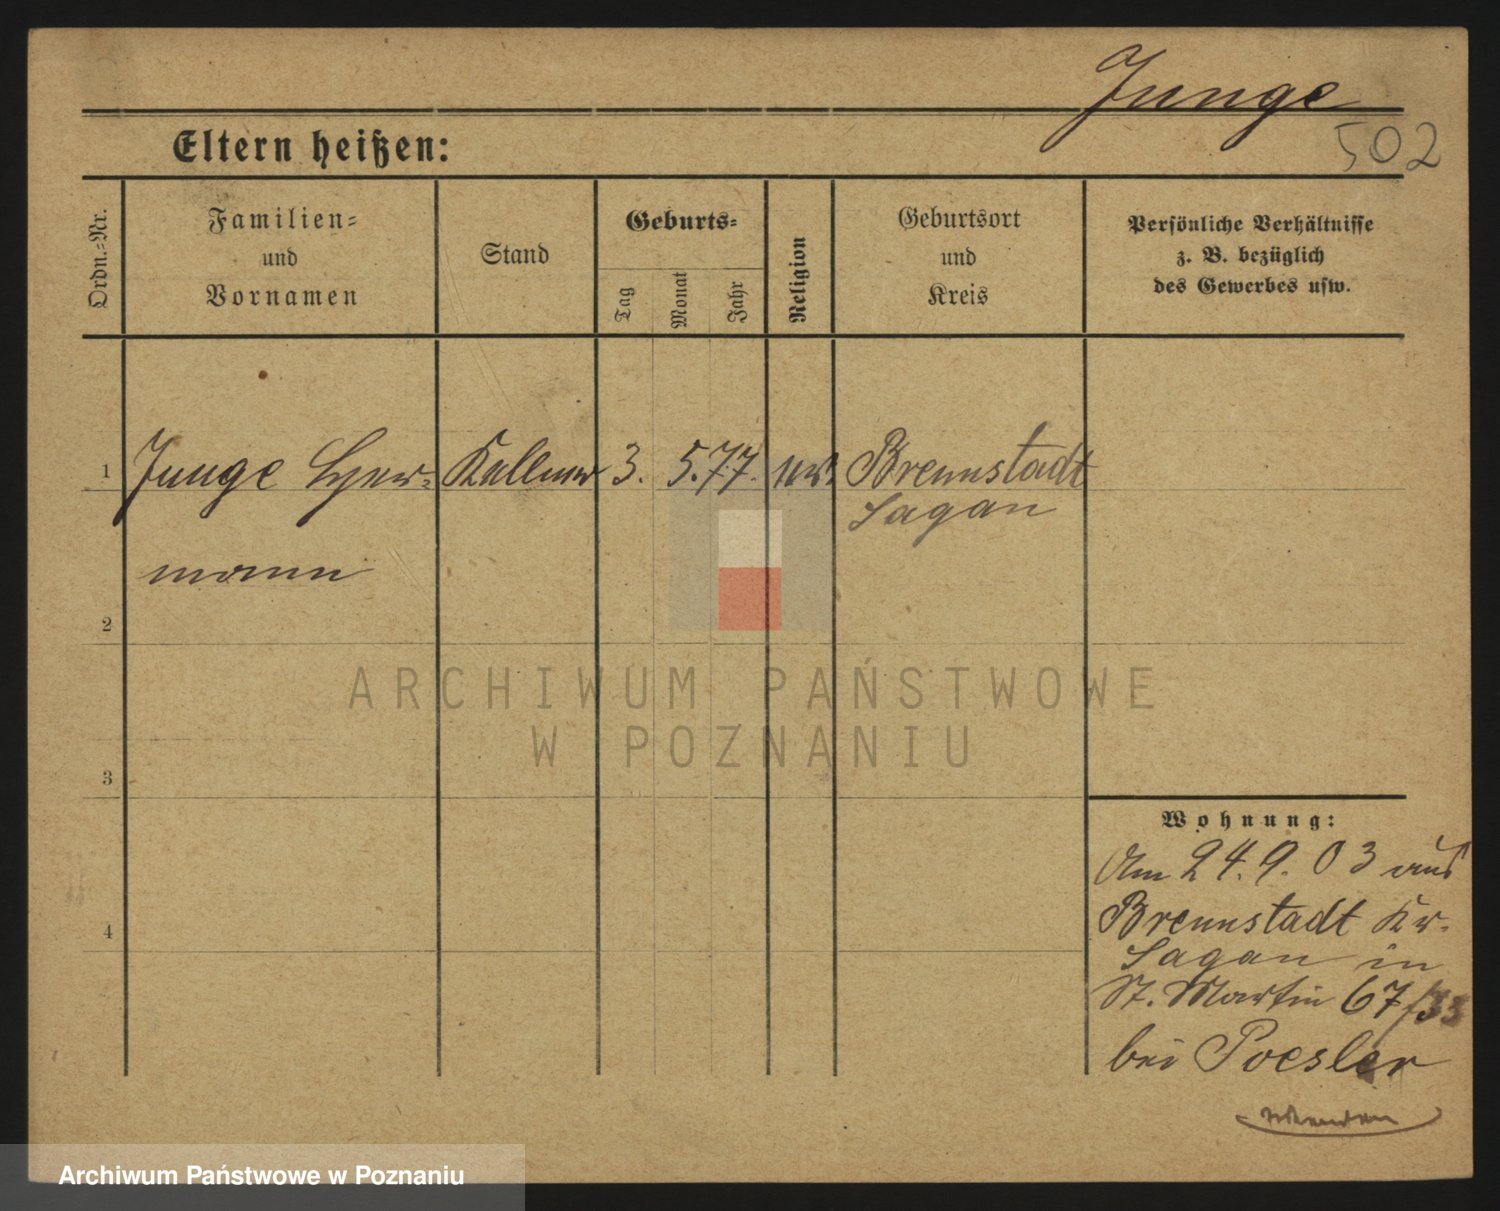 Junge
502
Eltern heißen:
Ordn.=Nr.
Familien=
und
Vornamen
Stand
Geburts=
Tag
Monat
Jahr
Religion
Geburtsort
und
Kreis
Persönliche Verhältnisse
z. B. bezüglich
des Gewerbes usw.
1
Junge Her=
mann
Kellner
3. 5. 77.
Brennstadt
Sagan
2
3
4
ARCHIWUM PAŃSTWOWE
W POZNANIU
Wohnung:
Am 24. 9. 03 aus
Brennstadt Kr.
Sagan in
St. Martin 67/33
bei Poesler
Archiwum Państwowe w Poznaniu